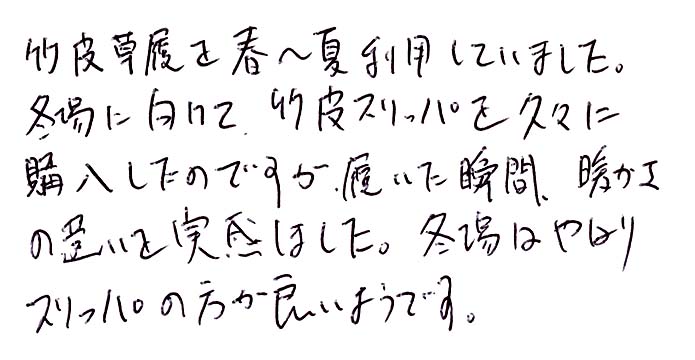 竹皮草履を春～夏利用していました。
冬場に向けて、竹皮スリッパを久々に
購入したのですが、履いた瞬間、暖かさ
の違いを実感しました。冬場はやはり
スリッパの方が良いようです。